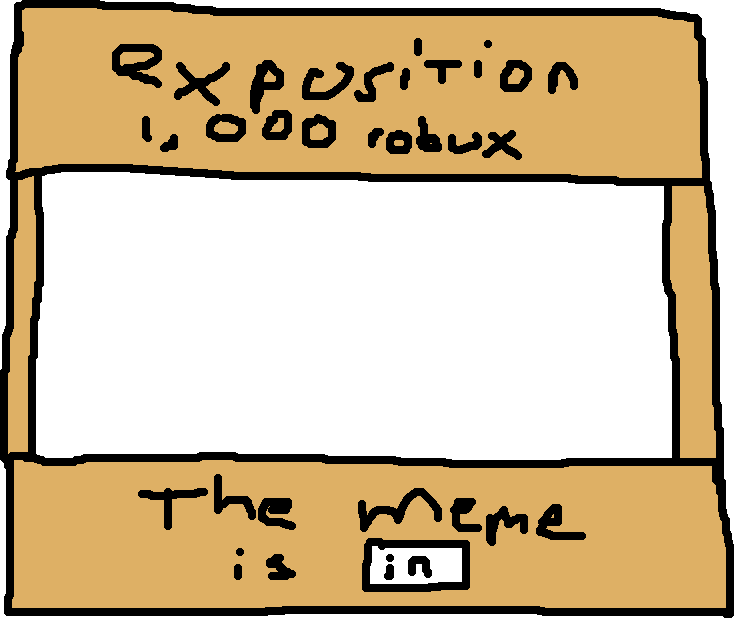 exposition
1,000 robux
The meme
is in